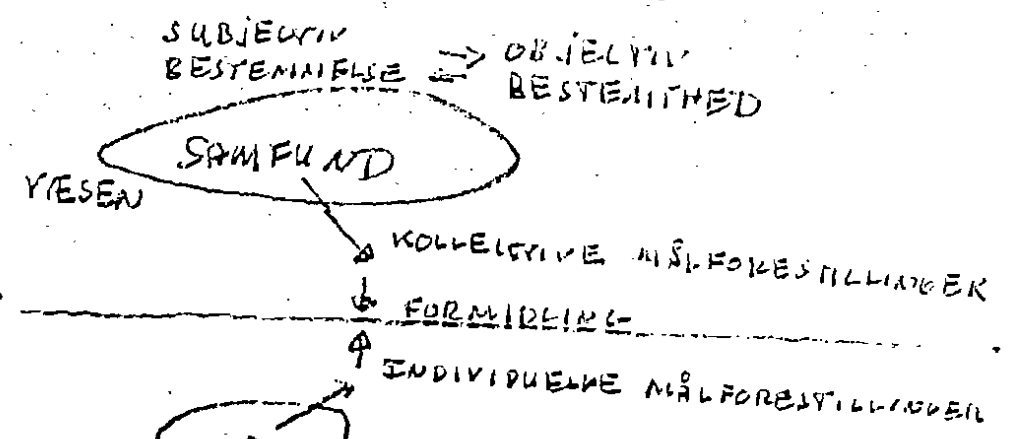 SUBJEKTIV
BESTEMMELSE
OBJEKTIV
BESTEMTHED
SAMFUND
VÆSEN
KOLLEKTIVE MÅLFORESTILLINGER
FORMIDLING
INDIVIDUELLE MÅLFORESTILLINGER